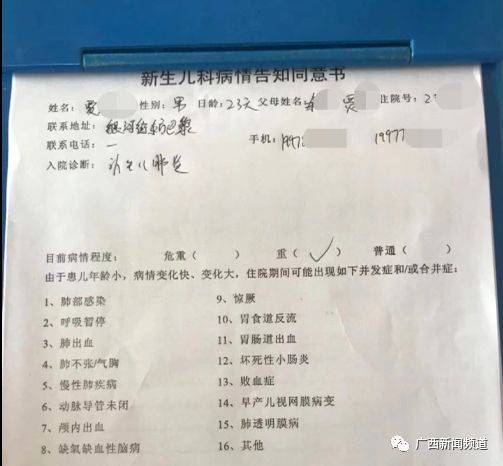 新生儿科病情告知同意书
姓名: 性别: 男 日龄: 23天 父母姓名 贾 住院号: 2
联系地址: 银河
联系电话: 一 手机: 1997 19977
入院诊断: 新生儿肺炎
目前病情程度: 危重( ) 重(√) 普通( )
由于患儿年龄小，病情变化快、变化大，住院期间可能出现如下并发症和/或合并症:
1、肺部感染 9、惊厥
2、呼吸暂停 10、胃食道反流
3、肺出血 11、胃肠道出血
4、肺不张/气胸 12、坏死性小肠炎
5、慢性肺疾病 13、败血症
6、动脉导管未闭 14、早产儿视网膜病变
7、颅内出血 15、肺透明膜病
8、缺氧缺血性脑病 16、其他
广西新闻频道